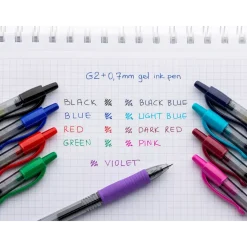 G2 + 0,7mm gel ink pen
BLACK BLACK BLUE
BLUE LIGHT BLUE
RED DARK RED
GREEN PINK
VIOLET